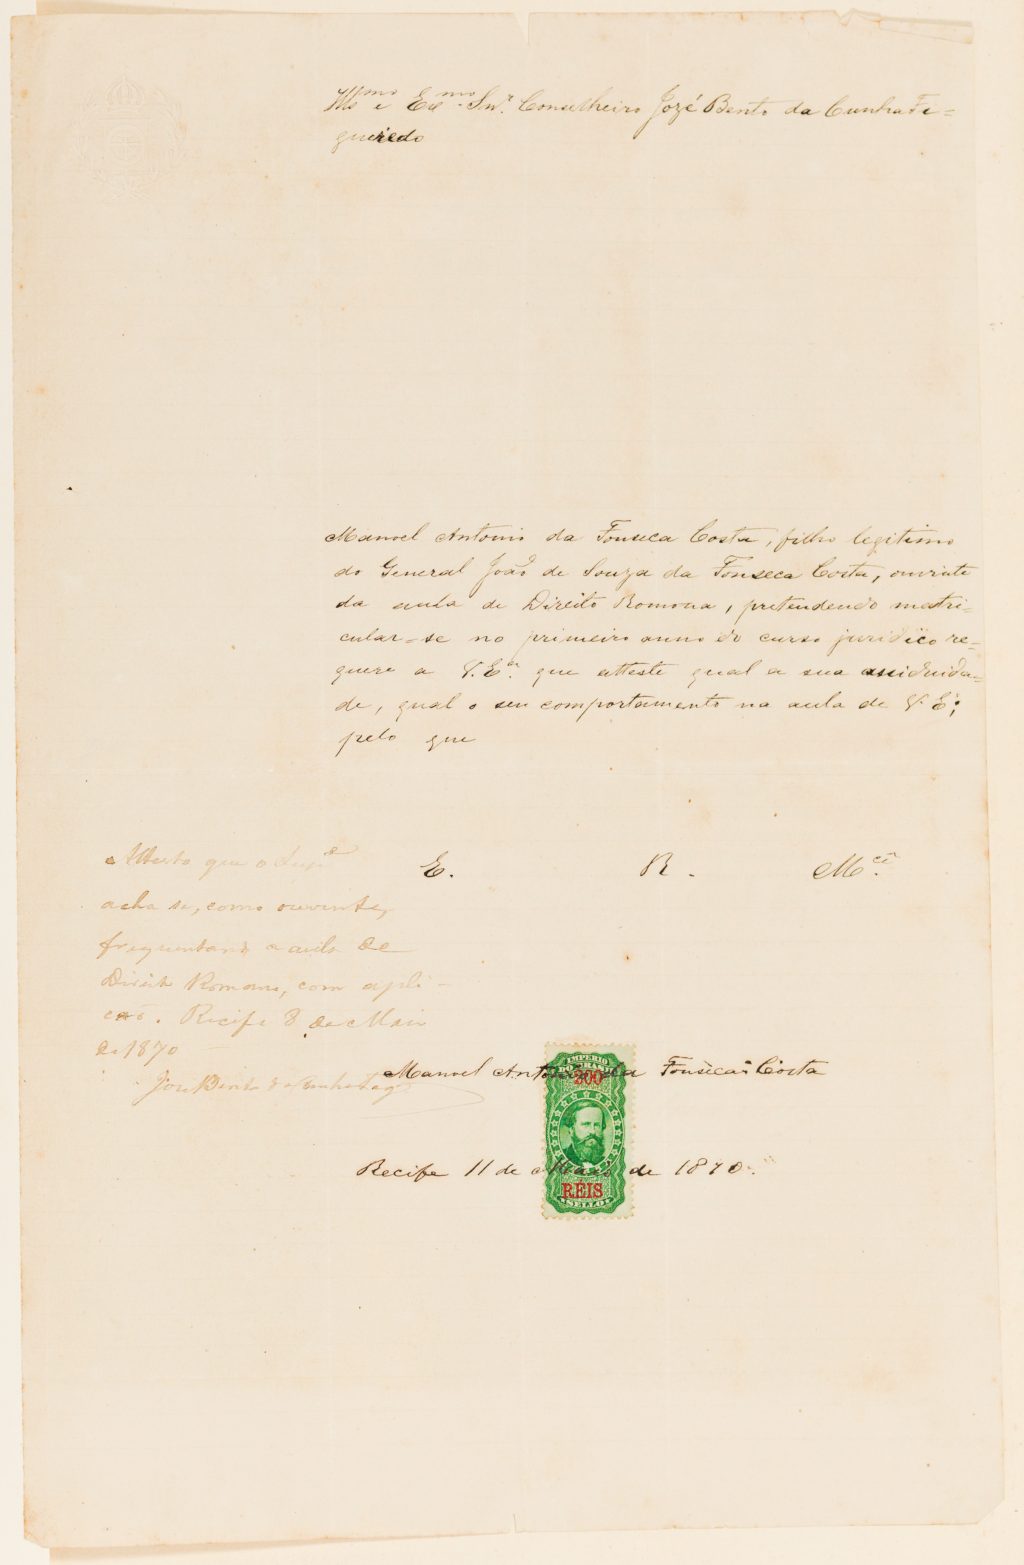 Illmo e Exmo Snr. Conselheiro Jozé Bento da Cunha Fi=
gueiredo
Manoel Antonio da Fonseca Costa, filho legitimo
do General João de Souza da Fonseca Costa, ouvinte
da aula de Direito Romona, pretendendo matri=
cular=se no primeiro anno do curso juridico re=
quere a V. Ecia. que atteste qual a sua assiduida=
de, qual o seu comportamento na aula de V. Ecia;
pelo que
E. R. Mce.
Attesto que o Supe
acha se, como ouvinte,
frequentando a aula de
Direito Romano, com apli-
cação. Recife 8 de Maio
de 1870
José Bento da Cunha Fig
Manoel Antonio da Fonseca Costa
IMPERIO
DO BRASIL
200
Recife 11 de Maio de 1870.
RÉIS
SELLO